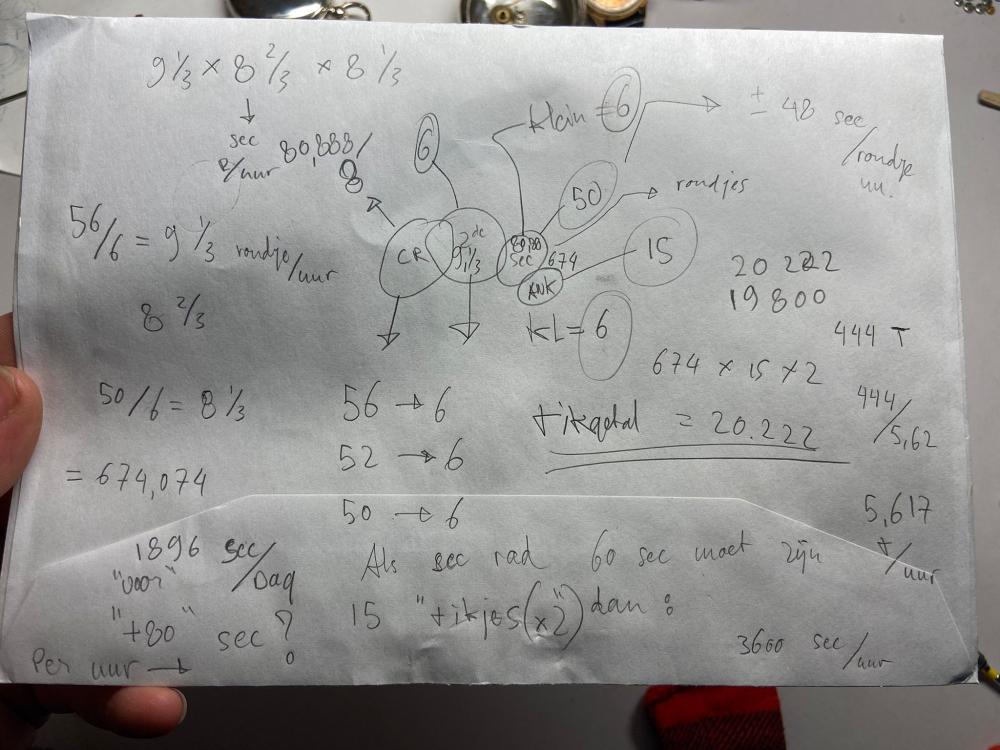 9 1/3 × 8 2/3 × 8 1/3
↓
sec
R/uur 80,888/
8
6
klein = 6
± 48 sec
/rondje
uu.
50
rondjes
56/6 = 9 1/3 rondje/uur
CR
2de
9 1/3
80,88
sec
674
15
ANK
KL = 6
8 2/3
20 222
19 800
444 T
674 × 15 × 2
50/6 = 8 1/3
56 → 6
444
/5,62
tikgetal = 20.222
52 → 6
= 674,074
50 → 6
5,617
t/uur
1896 sec/Dag
"voor"
"+80" sec?
Per uur →
Als sec rad 60 sec moet zijn
15 "tikjes (×2)" dan:
3600 sec/uur